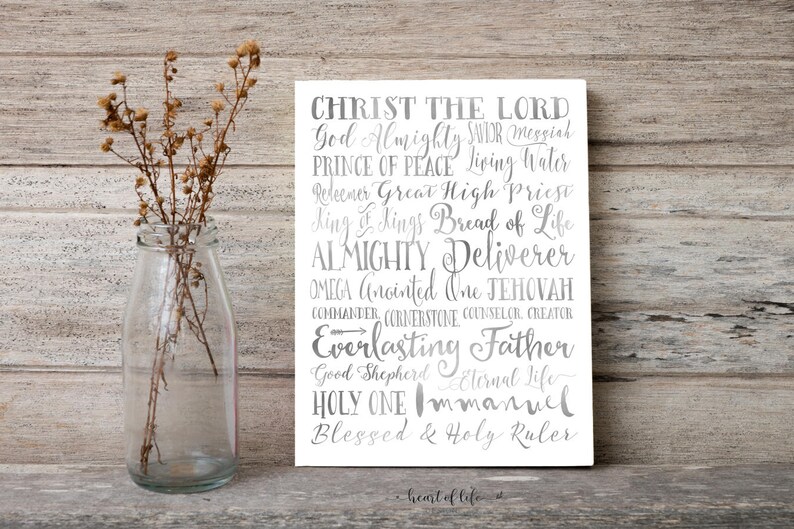 CHRIST THE LORD
God Almighty SAVIOR Messiah
PRINCE OF PEACE Living Water
Redeemer Great High Priest
King of Kings Bread of Life
ALMIGHTY Deliverer
OMEGA Anointed One JEHOVAH
COMMANDER, CORNERSTONE, COUNSELOR, CREATOR
Everlasting Father
Good Shepherd Eternal Life
HOLY ONE Immanuel
Blessed & Holy Ruler
heart of life